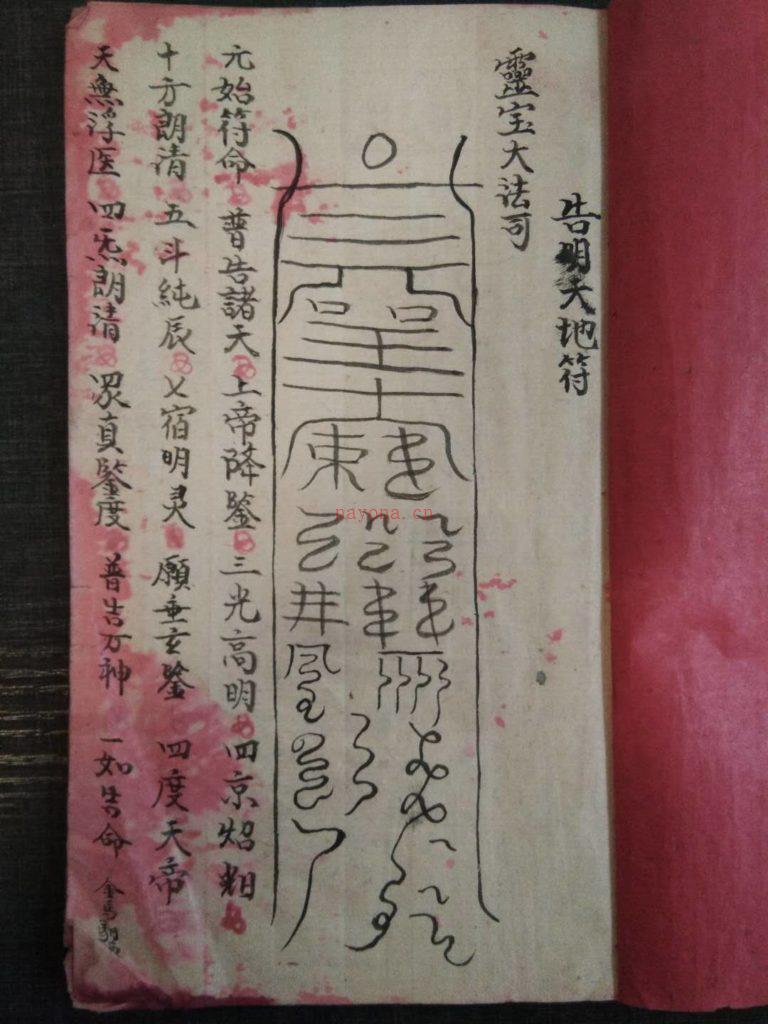 告明天地符
靈宝大法司
元始符命 普告諸天 上帝降鉴 三光高明 四京炤
十方朗清 五斗純辰 乂宿明灵 願垂玄鉴 四度天帝
天無浮医 四炁朗清 眾真鑒度 普告万神 一如告命
nayona.cn